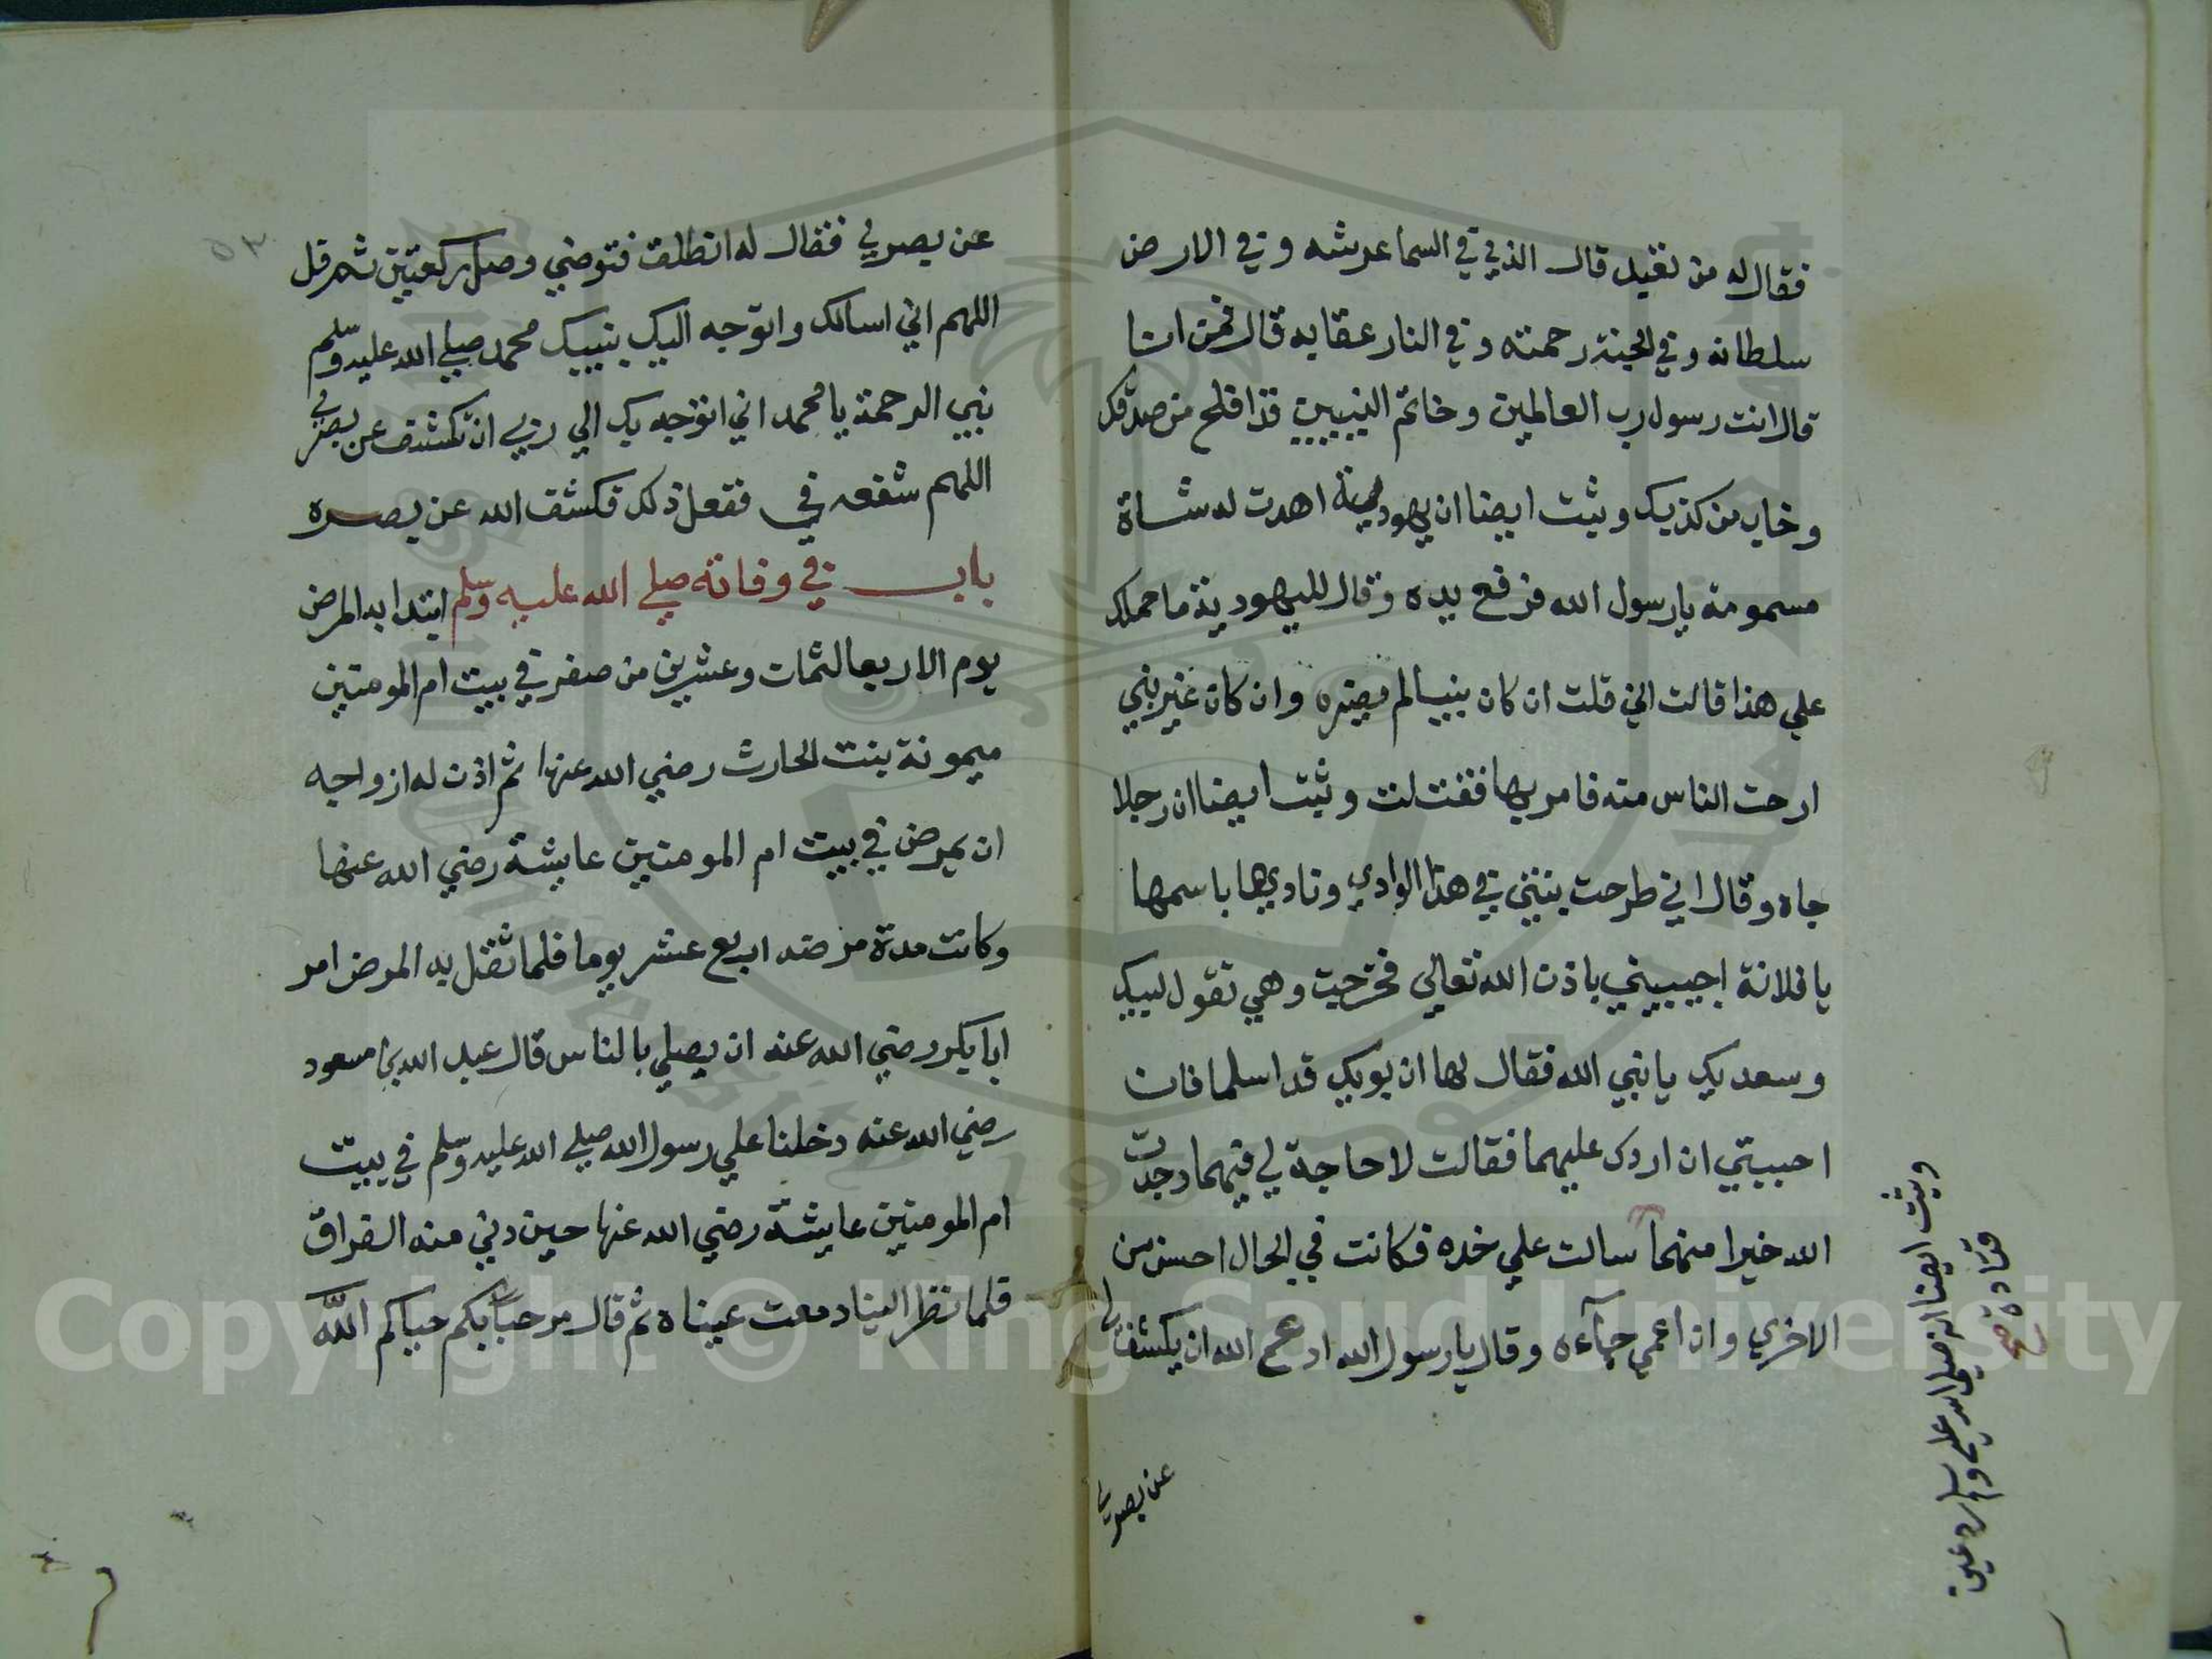 فقال له من تعبد قال الذي في السما عرشه وفي الارض
سلطانه وفي الجنة رحمته وفي النار عقابه قال فمن انا
قال انت رسول رب العالمين وخاتم النبيين قد افلح من صدقك
وخاب من كذبك وثبت ايضا ان يهودية اهدت له شاة
مسمومة يارسول الله فرفع يده وقال لليهودية ما حملك
علي هذا قالت اني قلت ان كان نبيا لم يضره وان كان غير نبي
ارحت الناس منه فامر بها فقتلت وثبت ايضا ان رجلا
جاه وقال اني طرحت بنتي في هذا الوادي وناديها باسمها
يا فلانة اجيبيني باذن الله تعالي فخرجت وهي تقول لبيك
وسعديك يا نبي الله فقال لها ان بويك قد اسلما فان
احببتي ان اردك عليهما فقالت لا حاجة لي فيهما وجدت
الله خيرا منهما سالت علي خده فكانت في الحال احسن من
الاخري وان اعمي جآءه وقال يارسول الله ادع الله ان يكشف لي
عن بصري
وثبت ايضا انه صلي الله عليه وسلم رد عين
قتادة صح
٥٣
عن بصري فقال له انطلق فتوضي وصل ركعتين ثم قل
اللهم اني اسالك واتوجه اليك بنبيك محمد صلي الله عليه وسلم
نبي الرحمة يا محمد اني اتوجه بك الي ربي ان تكشف عن بصري
اللهم شفعه في ففعل ذلك فكشف الله عن بصره
باب في وفاته صلي الله عليه وسلم ابتدا به المرض
يوم الاربعا لثمان وعشرين من صفر في بيت ام المومنين
ميمونة بنت الحارث رضي الله عنها ثم اذن له ازواجه
ان يمرض في بيت ام المومنين عايشة رضي الله عنها
وكانت مدة مرضه اربع عشر يوما فلما ثقل به المرض امر
ابا بكر رضي الله عنه ان يصلي بالناس قال عبد الله بن مسعود
رضي الله عنه دخلنا علي رسول الله صلي الله عليه وسلم في بيت
ام المومنين عايشة رضي الله عنها حين دني منه الفراق
فلما نظر الينا دمعت عيناه ثم قال مرحبا بكم حياكم الله
Copyright © King Saud University